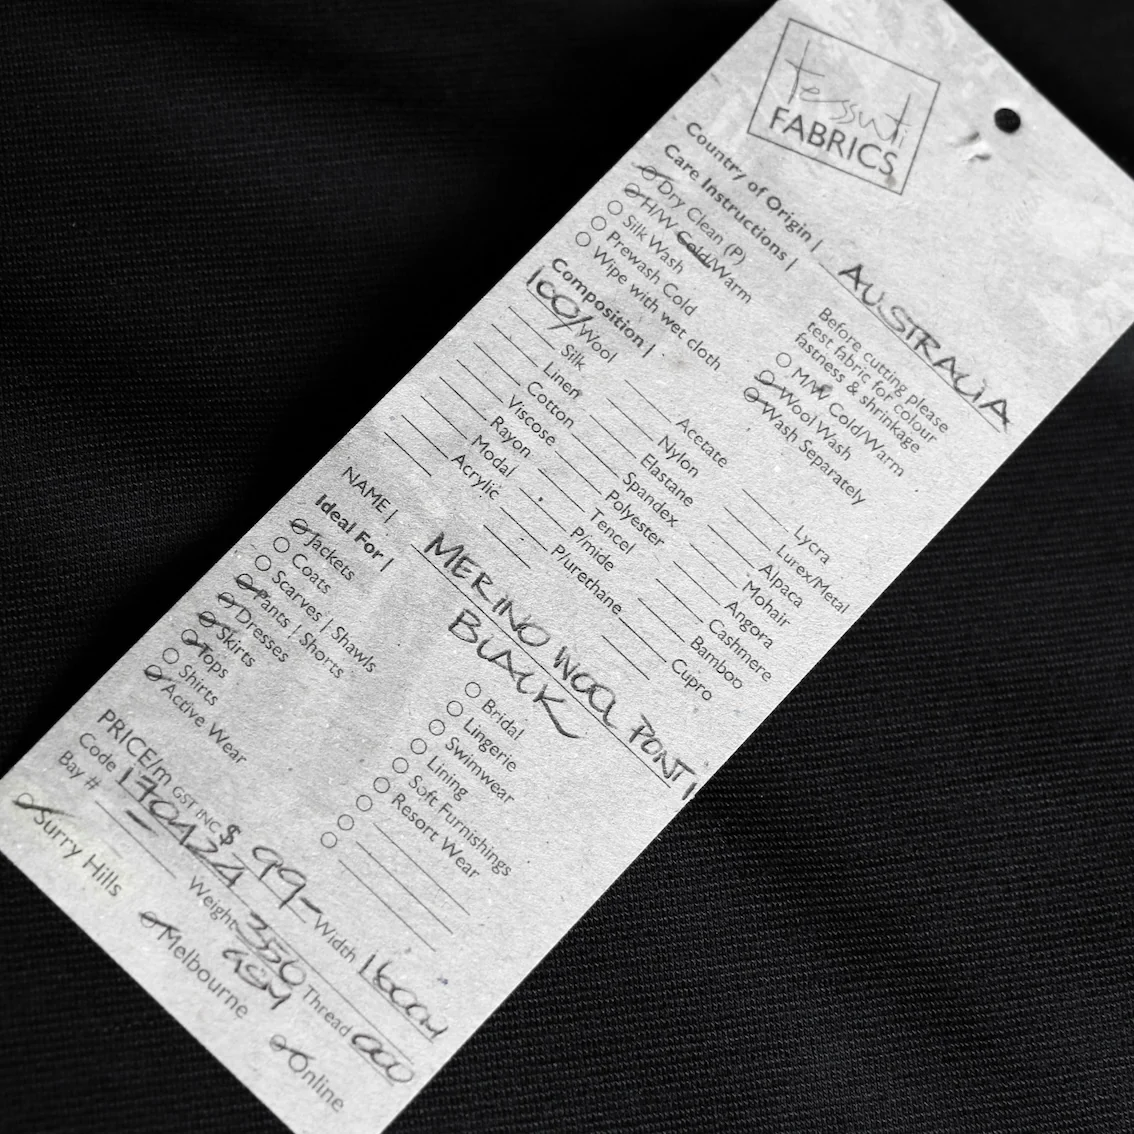 tessuti
FABRICS
Country of Origin | AUSTRALIA
Care Instructions |
Before cutting please
test fabric for colour
fastness & shrinkage
Dry Clean (P)
H/W Cold/Warm
Silk Wash
Prewash Cold
Wipe with wet cloth
M/W Cold/Warm
Wool Wash
Wash Separately
Composition |
100% Wool
Silk
Linen
Cotton
Viscose
Rayon
Modal
Acrylic
Acetate
Nylon
Elastane
Spandex
Polyester
Tencel
P/mide
P/urethane
Lycra
Lurex/Metal
Alpaca
Mohair
Angora
Cashmere
Bamboo
Cupro
NAME | MERINO WOOL PONTI
BLACK
Ideal For |
Jackets
Coats
Scarves | Shawls
Pants | Shorts
Dresses
Skirts
Tops
Shirts
Active Wear
Bridal
Lingerie
Swimwear
Lining
Soft Furnishings
Resort Wear
PRICE/m GST INC $ 99- Width 160CM
Code Weight 350 Thread 000
GSM
Bay #
Surry Hills
Melbourne
Online